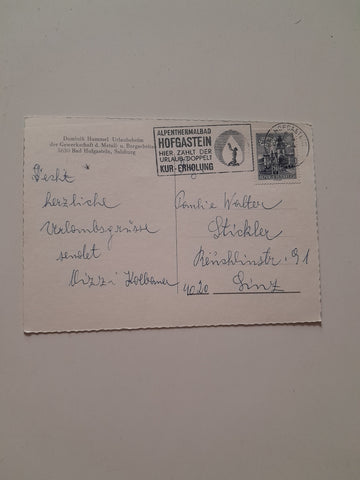 Dominik Hummel Urlaubsheim
der Gewerkschaft d. Metall- u. Bergarbeiter
5630 Bad Hofgastein, Salzburg
ALPENTHERMALBAD
HOFGASTEIN
HIER ZÄHLT DER
URLAUB DOPPELT
KUR-ERHOLUNG
HOFGASTEIN
Recht
herzliche
Urlaubsgrüsse
sendet
Familie Walter
Stickler
91
4020 Linz